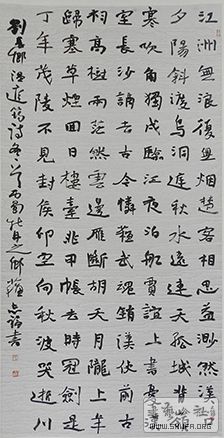 江洲無浪復無煙楚客相思益渺然漢口
夕陽斜渡鳥洞庭秋水遠連天孤城背嶺
寒吹角獨戍臨江夜泊船賈誼上書憂漢
室長沙謫去古今憐蘇武魂銷漢使前古
祠高樹兩茫然雲邊雁斷胡天月隴上羊
歸塞草煙回日樓臺非甲帳去時冠劍是
丁年茂陵不見封侯印空向秋波哭逝川
劉長卿溫庭筠詩各一首